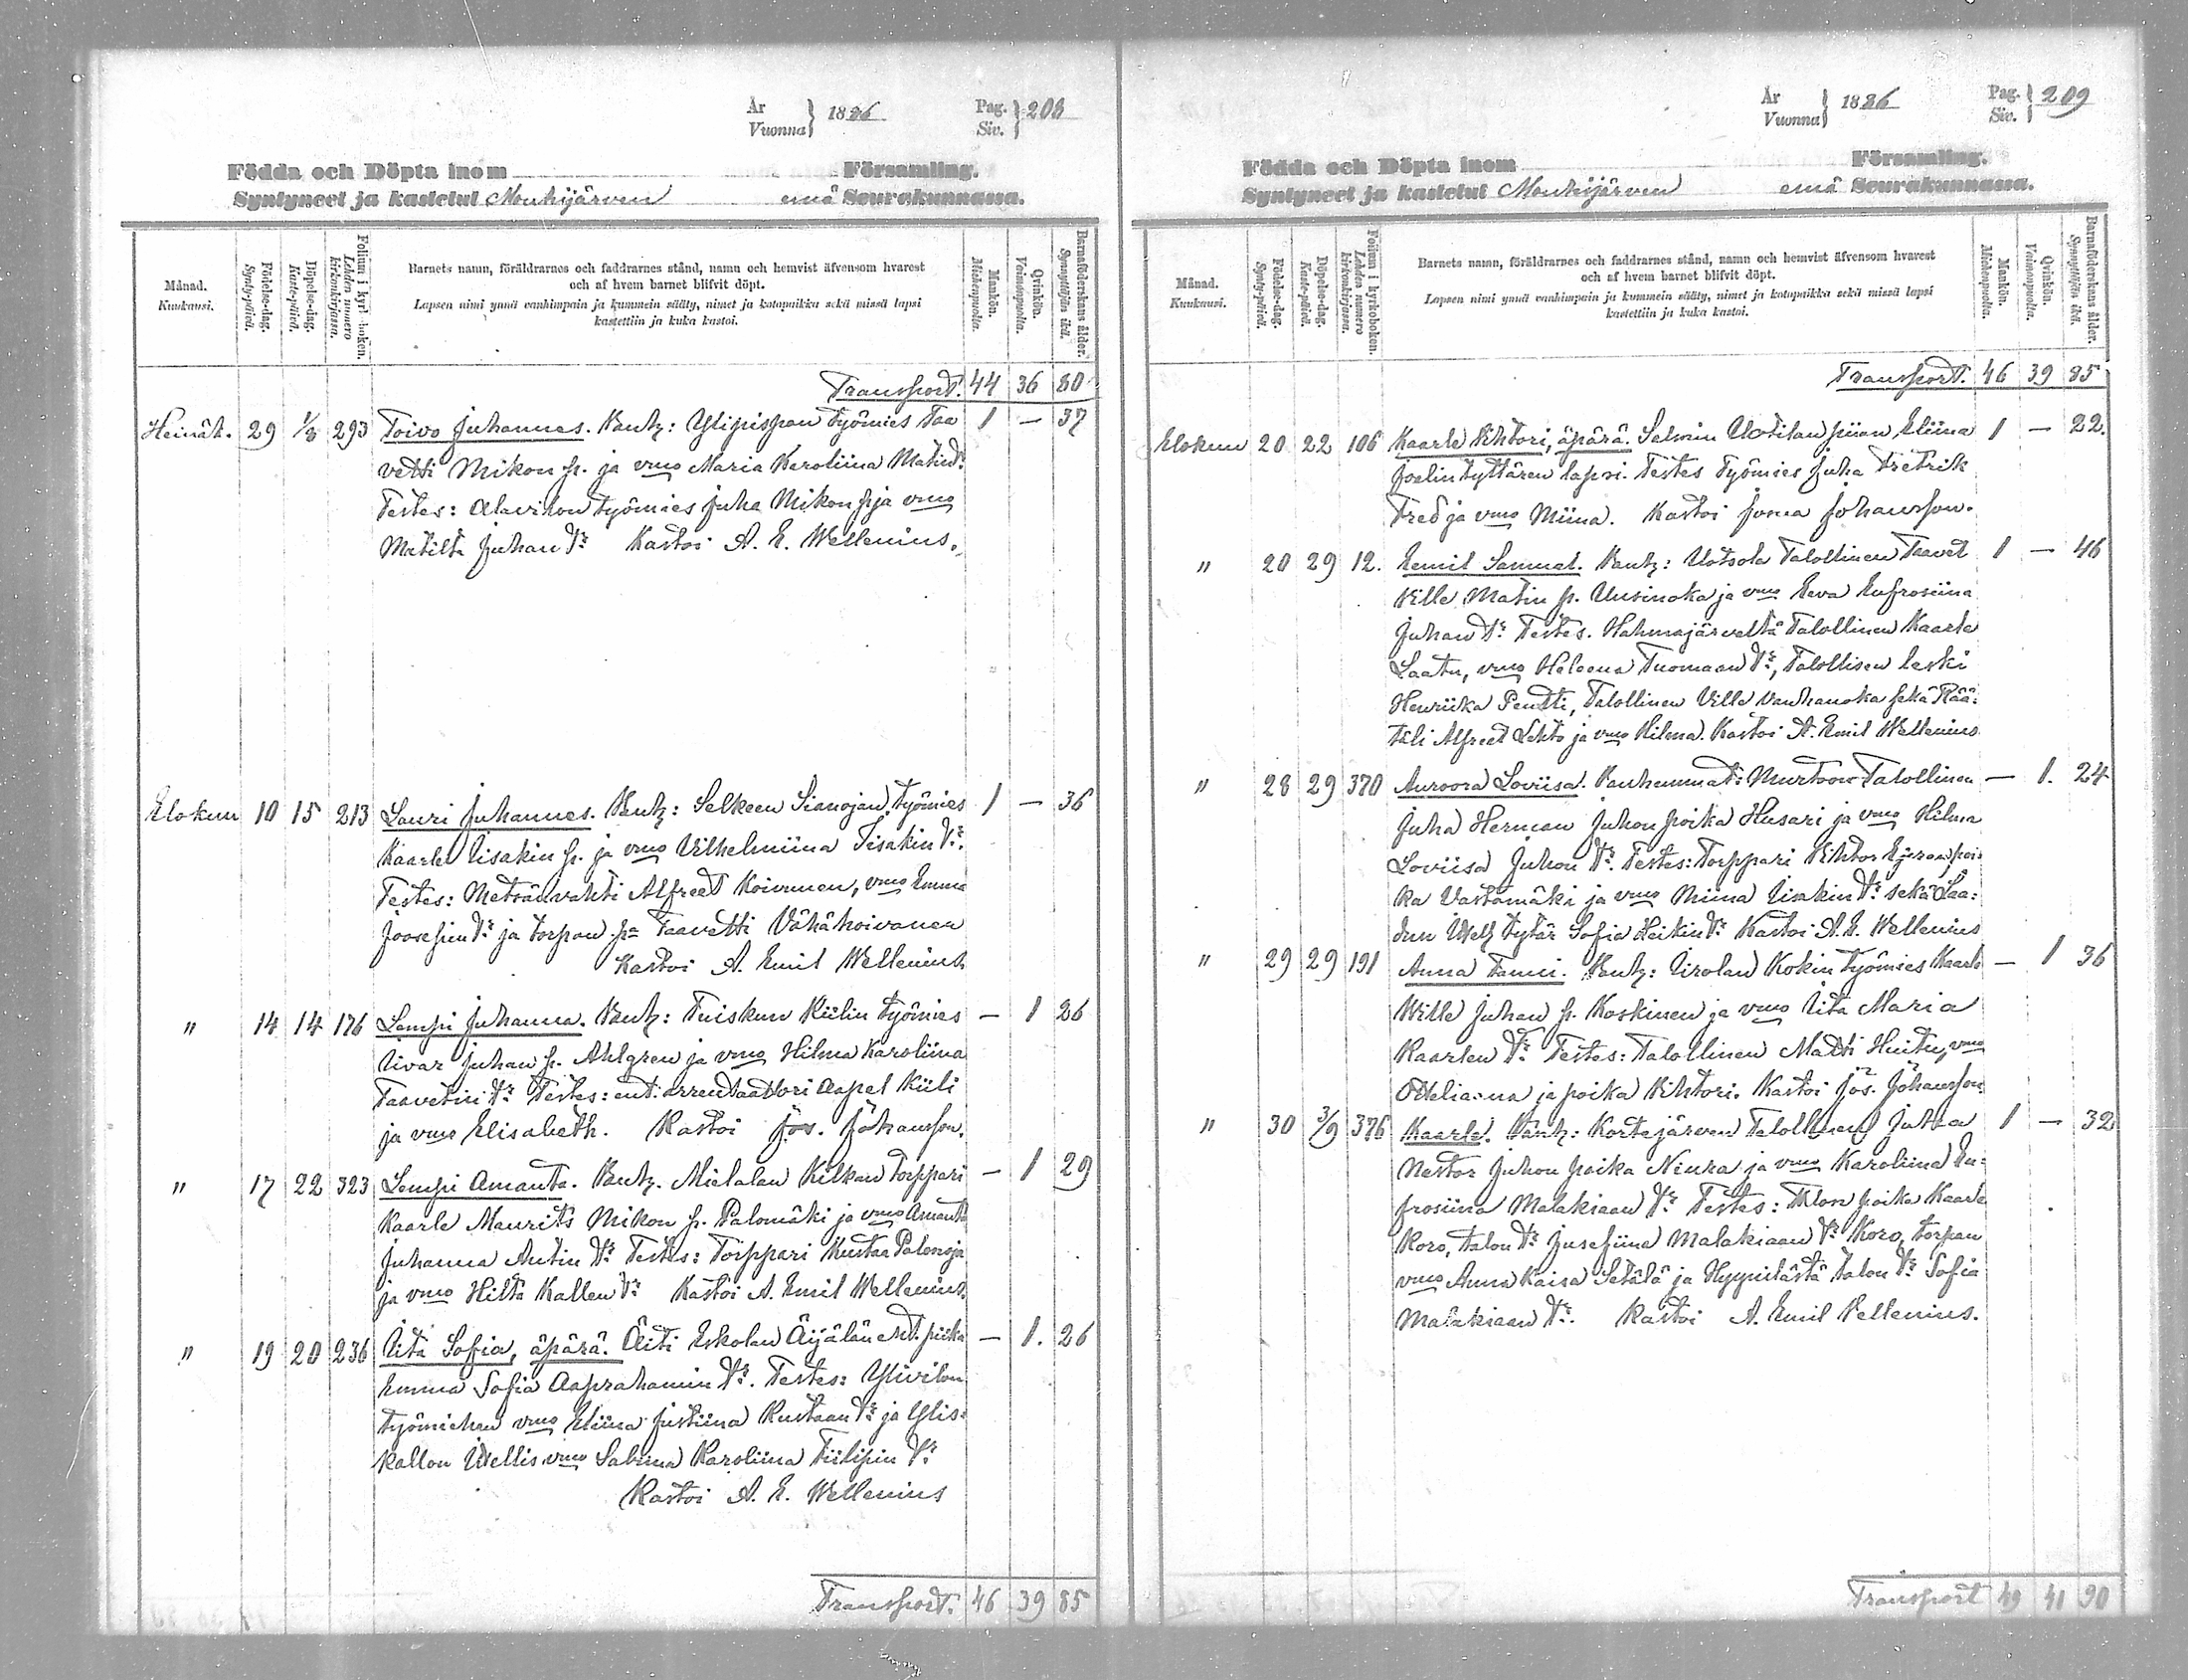 År
Vuonna } 1886
Pag.
Siv. } 208
Födda och Döpta inom Församling.
Syntyneet ja kastetut Mouhijärven emä Seurakunnassa.
Månad.
Kuukausi.
Födelse-dag.
Synty-päivä.
Döpelse-dag.
Kaste-päivä.
Folium i kyrkoboken.
Lehden numero kirkonkirjassa.
Barnets namn, föräldrarnes och faddrarnes stånd, namn och hemvist äfvensom hvarest
och af hvem barnet blifvit döpt.
Lapsen nimi ynnä vanhimpain ja kummein sääty, nimet ja kotopaikka sekä missä lapsi
kastettiin ja kuka kastoi.
Mankön.
Miehenpuolta.
Qvinkön.
Vaimonpuolta.
Barnaföderskans ålder.
Synnyttäjän ikä.
Transport. 44 36 80
Heinäk. 29 1/8 293 Toivo Juhannes. Vanh: Ylipispan työmies Taa 1 — 37
vetti Mikon p. ja vmo Maria Karoliina Matin tr
Testes: Alavilon työmies Juha Mikon p ja vmo
Matilta Juhan tr Kastoi A. E. Wellenius.
Elokuu 10 15 213 Lauri Juhannes. Vanh: Selkeen Sianojan työmies 1 — 36
Kaarle Iisakin p. ja vmo Vilhelmiina Iisakin tr.
Testes: Metsänvahti Alfreet Koivunen, vmo Emma
Joosepin tr ja torpan pa Taavetti Vähäkoivanen
Kastoi A. Emil Wellenius.
" 14 14 176 Lempi Juhanna. Vanh: Tuiskun Kiilin työmies — 1 26
Iivar Juhan p. Ahlgren ja vmo Hilma Karoliina
Taavetin tr Testes: ent. arrentaattori Aapel Kiili
ja vmo Elisabeth. Kastoi Jos. Johansson.
" 17 22 323 Lempi Amanta. Vanh. Mielalan Kilkun Torppari — 1 29
Kaarle Maurits Mikon p. Palomäki ja vmo Amanta
Juhanna Antin tr Testes: Torppari Kustaa Palonoja
ja vmo Hilta Kallen tr Kastoi A. Emil Wellenius.
" 19 20 236 Iita Sofia, äpärä. Äiti Eskolan Äijälän ent. piika — 1. 26
Emma Sofia Aaprahamin tr. Testes: Ylivilon
työmiehen vmo Eliina Justiina Kustaan tr ja Ylis-
kallon Itsellis vmo Sabina Karoliina Fiilipin tr
Kastoi A. E. Wellenius
Transport. 46 39 85
År
Vuonna } 1886
Pag.
Siv. } 209
Födda och Döpta inom Församling.
Syntyneet ja kastetut Mouhijärven emä Seurakunnassa.
Månad.
Kuukausi.
Födelse-dag.
Synty-päivä.
Döpelse-dag.
Kaste-päivä.
Folium i kyrkoboken.
Lehden numero kirkonkirjassa.
Barnets namn, föräldrarnes och faddrarnes stånd, namn och hemvist äfvensom hvarest
och af hvem barnet blifvit döpt.
Lapsen nimi ynnä vanhimpain ja kummein sääty, nimet ja kotopaikka sekä missä lapsi
kastettiin ja kuka kastoi.
Mankön.
Miehenpuolta.
Qvinkön.
Vaimonpuolta.
Barnaföderskans ålder.
Synnyttäjän ikä.
Transport. 46 39 85
Elokuu 20 22 106 Kaarle Vihtori, äpärä. Salmin Uotilan piian Eliina 1 — 22.
Joelin tyttären lapsi. Testes Työmies Juha Fretrik
Fred ja vmo Miina. Kastoi Johansson.
" 20 29 12. Eemil Samuel. Vanh: Uotsola Talollinen Taavet 1 — 46
Ville Matin p. Uusinoka ja vmo Eeva Eufrosiina
Juhan tr Testes. Hahmajärveltä Talollinen Kaarle
Laatu, vmo Heleena Tuomaan tr, Talollisen leski
Henriika Pentti, Talollinen Ville Vanhanoka sekä Rää-
täli Alfreet Lehto ja vmo Hilma. Kastoi A. Emil Wellenius
" 28 29 370 Auroora Loviisa. Vanhemmat: Murtoon Talollinen — 1. 24
Juha Herman Juhon poika Husari ja vmo Hilma
Loviisa Juhon tr. Testes: Torppari Vihtor poi-
ka Vastamäki ja vmo Miina Iisakin tr sekä Laa-
dun Itsell tytär Sofia Heikin tr Kastoi A. E. Wellenius
" 29 29 191 Anna Fanni. Vanh: Iirolan Kokin työmies Kaarle — 1 36
Wille Juhan p. Koskinen ja vmo Iita Maria
Kaarlen tr Testes: Talollinen Matti Huitu, vmo
Ottelia-na ja poika Vihtori. Kastoi Jos. Johansson
" 30 3/9 376 Kaarle. Vanh: Kortejärven Talollinen Juha 1 — 32
Nestor Juhon poika Niuha ja vmo Karoliina Eu-
frosiina Malakiaan tr Testes: Talon poika Kaarle
Koro, talon tr Josefiina Malakiaan tr Koro, torpan
vmo Anna Kaisa Setälä ja Hyynilästä talon tr Sofia
Malakiaan tr. Kastoi A. Emil Vellenius.
Transport 49 41 90